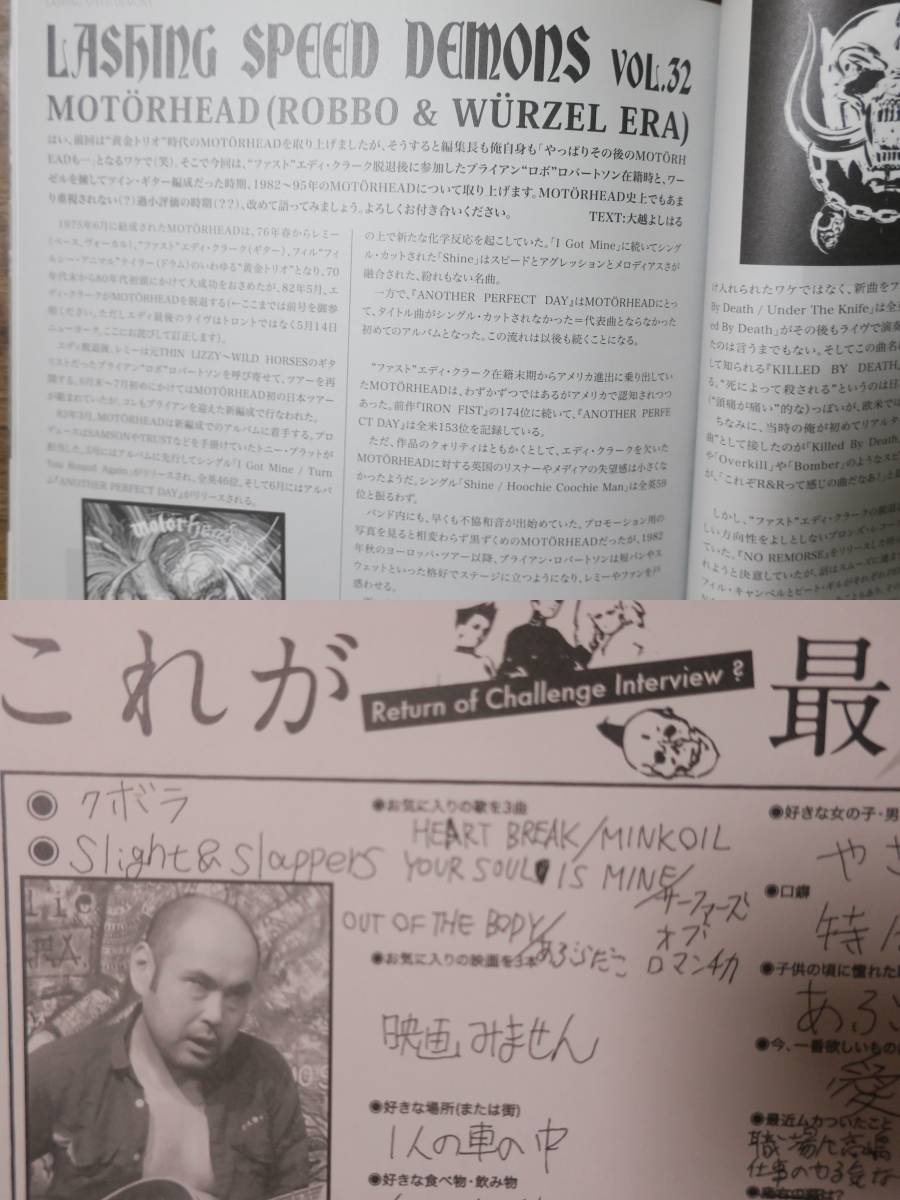 LASHING SPEED DEMONS
LASHING SPEED DEMONS VOL.32
MOTÖRHEAD (ROBBO & WÜRZEL ERA)
はい、前回は“黄金トリオ”時代のMOTÖRHEADを取り上げましたが、そうすると編集長も俺自身も「やっぱりその後のMOTÖRH
EADも…」となるワケで(笑)。そこで今回は、“ファスト”エディ・クラーク脱退後に参加したブライアン“ロボ”ロバートソン在籍時と、ワー
ゼルを擁してツイン・ギター編成だった時期、1982〜95年のMOTÖRHEADについて取り上げます。MOTÖRHEAD史上でもあま
り重視されない(?)過小評価の時期(??)、改めて語ってみましょう。よろしくお付き合いください。
TEXT:大越よしはる
1975年6月に結成されたMOTÖRHEADは、76年春からレミー
(ベース、ヴォーカル)、“ファスト”エディ・クラーク(ギター)、フィル“フィ
ルシー・アニマル”テイラー(ドラム)のいわゆる“黄金トリオ”となり、70
年代末から80年代初頭にかけて大成功をおさめたが、82年5月、エ
ディ・クラークがMOTÖRHEADを脱退する(←ここまでは前号を御参
照ください。ただしエディ最後のライヴはトロントではなく5月14日
ニューヨーク。ここにお詫びして訂正します)。
エディ脱退後、レミーは元THIN LIZZY〜WILD HORSESのギタ
リストだったブライアン“ロボ”ロバートソンを呼び寄せて、ツアーを再
開する。6月末〜7月初めにかけてはMOTÖRHEAD初の日本ツアー
が組まれていたが、コレもブライアンを迎えた新編成で行なわれた。
83年3月、MOTÖRHEADは新編成でのアルバムに着手する。プロ
デュースはSAMSONやTRUSTなどを手掛けていたトニー・プラットが
担当した。5月にはアルバムに先行してシングル「I Got Mine / Turn
You Round Again」がリリースされ、全英46位。そして6月にはアルバ
ム『ANOTHER PERFECT DAY』がリリースされる。
motörhead
の上で新たな化学反応を起こしていた。「I Got Mine」に続いてシング
ル・カットされた「Shine」はスピードとアグレッションとメロディアスさが
融合された、紛れもない名曲。
一方で、『ANOTHER PERFECT DAY』はMOTÖRHEADにとっ
て、タイトル曲がシングル・カットされなかった=代表曲とならなかった
初めてのアルバムとなった。この流れは以後も続くことになる。
“ファスト”エディ・クラーク在籍末期からアメリカ進出に乗り出してい
たMOTÖRHEADは、わずかずつではあるがアメリカで認知されつつ
あった。前作『IRON FIST』の174位に続いて、『ANOTHER PERFE
CT DAY』は全米153位を記録している。
ただ、作品のクォリティはともかくとして、エディ・クラークを欠いた
MOTÖRHEADに対する英国のリスナーやメディアの失望感は小さくな
かったようだ。シングル「Shine / Hoochie Coochie Man」は全英59
位と振るわず。
バンド内にも、早くも不協和音が出始めていた。プロモーション用の
写真を見ると相変わらず黒ずくめのMOTÖRHEADだったが、1982
年秋のヨーロッパ・ツアー以降、ブライアン・ロバートソンは短パンやス
ウェットといった格好でステージに立つようになり、レミーやファンを戸
惑わせる。
け入れられたワケではなく、新曲をフ
By Death / Under The Knife」は全
ed By Death」がその後もライヴで演奏
たのは言うまでもない。そしてこの曲名
して知られる『KILLED BY DEATH
る。“死によって殺される”というのは日
(“頭痛が痛い”的な)っぽいが、欧米では
ちなみに、当時の俺が初めてリアルタ
曲”として接したのが「Killed By Death」
や「Overkill」や「Bomber」のようなスピ
が、「これぞR&Rって感じの曲だなあ!」と
しかし、“ファスト”エディ・クラークの脱退
しい方向性をよしとしないブロンズ・レコー
ていた。『NO REMORSE』をリリースした時
れようと決意していたが、話はスムーズに進ま
フィル・キャンベルとピート・ギルがそれぞれ
これが
Return of Challenge Interview ?
最
◉ クボラ
◉ Slight & Slappers
●お気に入りの歌を3曲
HEART BREAK/MINKOIL
YOUR SOUL IS MINE/
サーファーズ
オブ
ロマンチカ
OUT OF THE BODY/
あぶらだこ
●お気に入りの映画を3本
映画みません
●好きな場所(または街)
1人の車の中
●好きな食べ物・飲み物
●好きな女の子・男
やさ
●口癖
特に
●子供の頃に憧れた
●今、一番欲しいもの
愛
●最近ムカついたこと
職場
仕事のやる気な